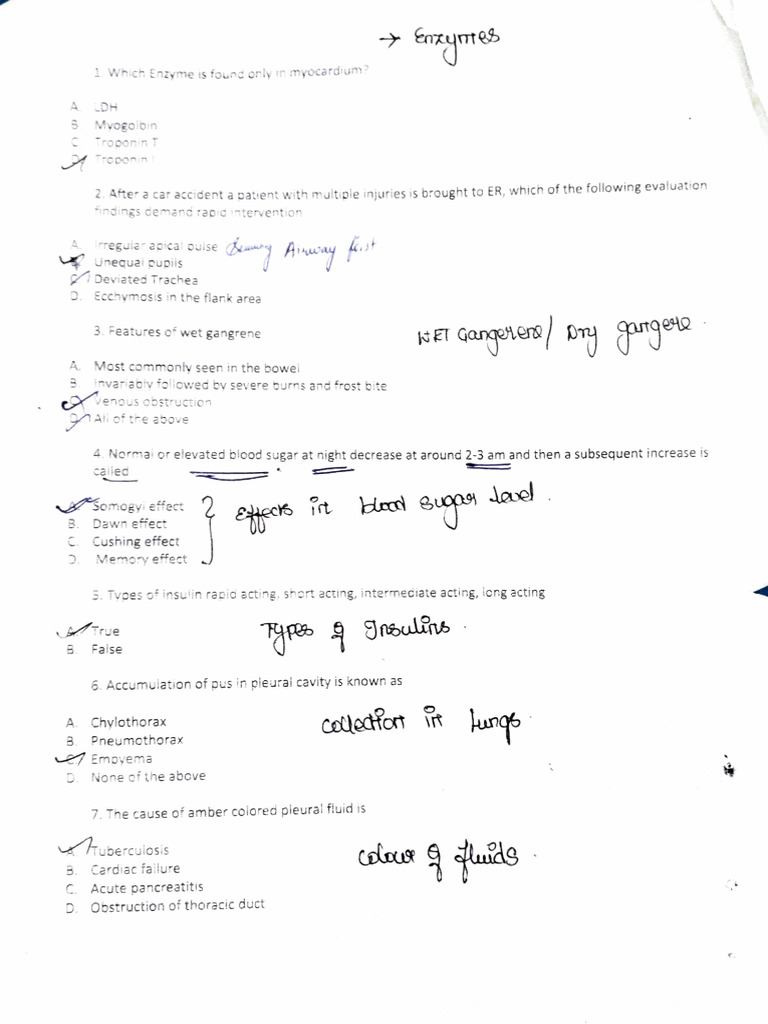 → Enzymes
1. Which Enzyme is found only in myocardium?
A. LDH
B. Myogolbin
C. Troponin T
D. Troponin I
2. After a car accident a patient with multiple injuries is brought to ER, which of the following evaluation
findings demand rapid intervention
A. Irregular apical pulse Airway first
Unequal pupils
C. Deviated Trachea
D. Ecchymosis in the flank area
3. Features of wet gangrene WET Gangerene/ Dry gangere.
A. Most commonly seen in the bowel
B. Invariably followed by severe burns and frost bite
C. Venous obstruction
D. All of the above
4. Normal or elevated blood sugar at night decrease at around 2-3 am and then a subsequent increase is
called
A. Somogyi effect
B. Dawn effect Effects in blood sugar level.
C. Cushing effect
D. Memory effect
5. Types of insulin rapid acting, short acting, intermediate acting, long acting
A. True Types of Insulins.
B. False
6. Accumulation of pus in pleural cavity is known as
A. Chylothorax collection in Lungs.
B. Pneumothorax
C. Empyema
D. None of the above
7. The cause of amber colored pleural fluid is
A. Tuberculosis colour of fluids.
B. Cardiac failure
C. Acute pancreatitis
D. Obstruction of thoracic duct